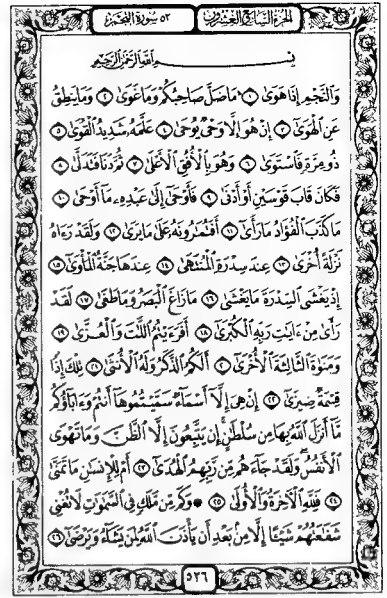 الجزء السابع والعشرون ٥٣ سورة النجم
بِسْمِ اللَّهِ الرَّحْمَٰنِ الرَّحِيمِ
وَالنَّجْمِ إِذَا هَوَىٰ ١ مَا ضَلَّ صَاحِبُكُمْ وَمَا غَوَىٰ ٢ وَمَا يَنطِقُ
عَنِ الْهَوَىٰ ٣ إِنْ هُوَ إِلَّا وَحْيٌ يُوحَىٰ ٤ عَلَّمَهُ شَدِيدُ الْقُوَىٰ ٥
ذُو مِرَّةٍ فَاسْتَوَىٰ ٦ وَهُوَ بِالْأُفُقِ الْأَعْلَىٰ ٧ ثُمَّ دَنَا فَتَدَلَّىٰ ٨
فَكَانَ قَابَ قَوْسَيْنِ أَوْ أَدْنَىٰ ٩ فَأَوْحَىٰ إِلَىٰ عَبْدِهِ مَا أَوْحَىٰ ١٠
مَا كَذَبَ الْفُؤَادُ مَا رَأَىٰ ١١ أَفَتُمَارُونَهُ عَلَىٰ مَا يَرَىٰ ١٢ وَلَقَدْ رَءَاهُ
نَزْلَةً أُخْرَىٰ ١٣ عِندَ سِدْرَةِ الْمُنتَهَىٰ ١٤ عِندَهَا جَنَّةُ الْمَأْوَىٰ ١٥
إِذْ يَغْشَى السِّدْرَةَ مَا يَغْشَىٰ ١٦ مَا زَاغَ الْبَصَرُ وَمَا طَغَىٰ ١٧ لَقَدْ
رَأَىٰ مِنْ ءَايَٰتِ رَبِّهِ الْكُبْرَىٰ ١٨ أَفَرَءَيْتُمُ اللَّٰتَ وَالْعُزَّىٰ ١٩
وَمَنَوٰةَ الثَّالِثَةَ الْأُخْرَىٰ ٢٠ أَلَكُمُ الذَّكَرُ وَلَهُ الْأُنثَىٰ ٢١ تِلْكَ إِذًا
قِسْمَةٌ ضِيزَىٰ ٢٢ إِنْ هِيَ إِلَّا أَسْمَاءٌ سَمَّيْتُمُوهَا أَنتُمْ وَءَابَاؤُكُم
مَّا أَنزَلَ اللَّهُ بِهَا مِن سُلْطَٰنٍ إِن يَتَّبِعُونَ إِلَّا الظَّنَّ وَمَا تَهْوَى
الْأَنفُسُ وَلَقَدْ جَاءَهُم مِّن رَّبِّهِمُ الْهُدَىٰ ٢٣ أَمْ لِلْإِنسَٰنِ مَا تَمَنَّىٰ
٢٤ فَلِلَّهِ الْآخِرَةُ وَالْأُولَىٰ ٢٥ وَكَم مِّن مَّلَكٍ فِي السَّمَٰوَٰتِ لَا تُغْنِي
شَفَٰعَتُهُمْ شَيْئًا إِلَّا مِن بَعْدِ أَن يَأْذَنَ اللَّهُ لِمَن يَشَاءُ وَيَرْضَىٰ ٢٦
٥٢٦